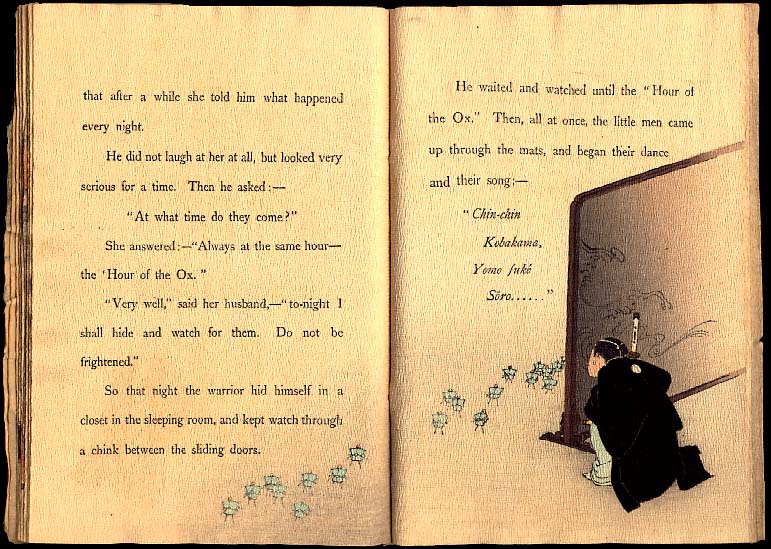 that after a while she told him what happened
every night.
He did not laugh at her at all, but looked very
serious for a time. Then he asked:—
"At what time do they come?"
She answered:—"Always at the same hour—
the 'Hour of the Ox.'"
"Very well," said her husband,—"to-night I
shall hide and watch for them. Do not be
frightened."
So that night the warrior hid himself in a
closet in the sleeping room, and kept watch through
a chink between the sliding doors.
He waited and watched until the "Hour of
the Ox." Then, all at once, the little men came
up through the mats, and began their dance
and their song:—
"Chin-chin
Kobakama,
Yomo fuké
Sōro......"